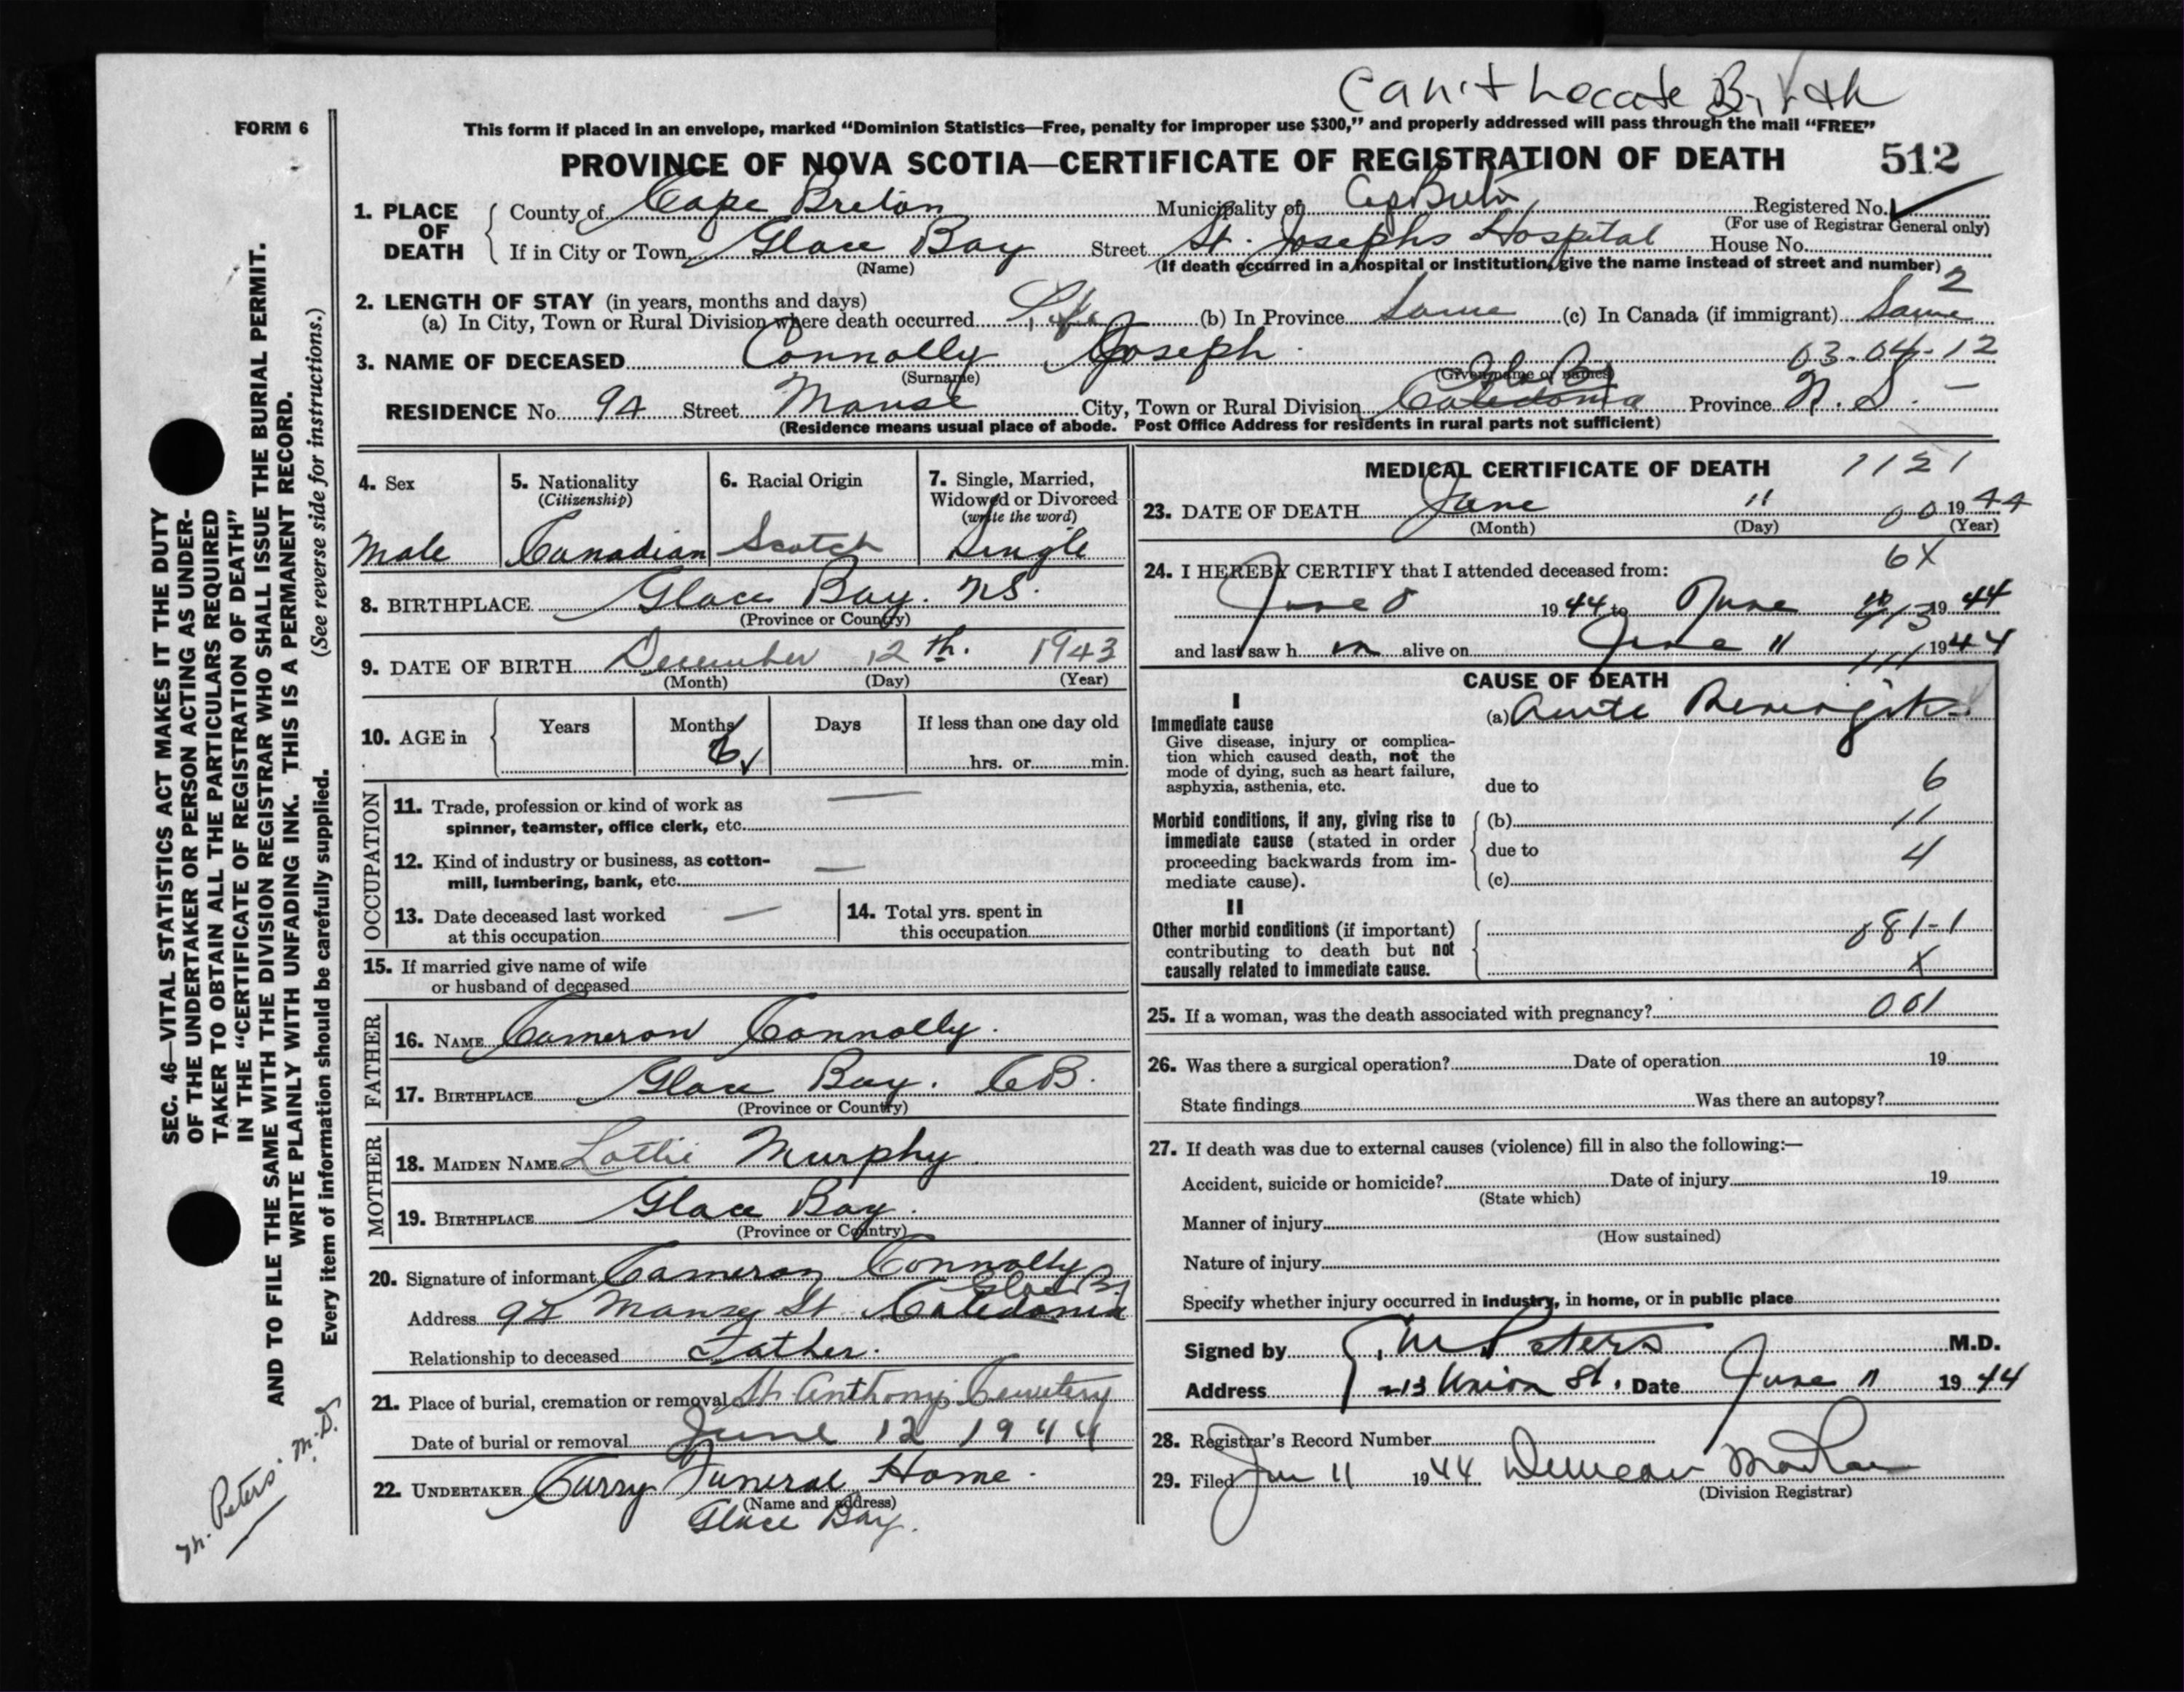 Can't Locate Birth
FORM 6
This form if placed in an envelope, marked “Dominion Statistics—Free, penalty for improper use $300,” and properly addressed will pass through the mail “FREE”
PROVINCE OF NOVA SCOTIA—CERTIFICATE OF REGISTRATION OF DEATH 512
1. PLACE OF DEATH
County of Cape Breton Municipality of Cap Breton Registered No.
(For use of Registrar General only)
If in City or Town Glace Bay Street St. Josephs Hospital House No.
(Name) (If death occurred in a hospital or institution, give the name instead of street and number)
2
2. LENGTH OF STAY (in years, months and days)
(a) In City, Town or Rural Division where death occurred Life (b) In Province Same (c) In Canada (if immigrant) Same
3. NAME OF DECEASED Connolly Joseph 03-04-12
(Surname) (Given name or names)
Glace Bay
RESIDENCE No. 94 Street Manse City, Town or Rural Division Caledonia Province N.S. —
(Residence means usual place of abode. Post Office Address for residents in rural parts not sufficient)
4. Sex
Male
5. Nationality
(Citizenship)
Canadian
6. Racial Origin
Scotch
7. Single, Married,
Widowed or Divorced
(write the word)
Single
8. BIRTHPLACE Glace Bay. N.S.
(Province or Country)
9. DATE OF BIRTH December 12th. 1943
(Month) (Day) (Year)
10. AGE in
Years Months Days If less than one day old
6 hrs. or min.
OCCUPATION
11. Trade, profession or kind of work as —
spinner, teamster, office clerk, etc.
12. Kind of industry or business, as cotton- —
mill, lumbering, bank, etc.
13. Date deceased last worked —
at this occupation
14. Total yrs. spent in
this occupation
15. If married give name of wife
or husband of deceased
FATHER
16. NAME Cameron Connolly.
17. BIRTHPLACE Glace Bay. C.B.
(Province or Country)
MOTHER
18. MAIDEN NAME Lottie Murphy
19. BIRTHPLACE Glace Bay.
(Province or Country)
20. Signature of informant Cameron Connolly
Glace Bay
Address 94 Manse St Caledonia
Relationship to deceased Father.
21. Place of burial, cremation or removal St. Anthony's Cemetery
Date of burial or removal June 12 1944
22. UNDERTAKER Curry Funeral Home.
(Name and address)
Glace Bay.
MEDICAL CERTIFICATE OF DEATH 1121
23. DATE OF DEATH June 11 00 1944
(Month) (Day) (Year)
6X
24. I HEREBY CERTIFY that I attended deceased from:
June 8 1944 to June 1944
and last saw h im alive on June 11 1944
111
CAUSE OF DEATH
I
Immediate cause
Give disease, injury or complica-
tion which caused death, not the
mode of dying, such as heart failure,
asphyxia, asthenia, etc.
(a) Acute Meningitis
due to 6
Morbid conditions, if any, giving rise to
immediate cause (stated in order
proceeding backwards from im-
mediate cause).
(b) 11
due to 4
(c)
II
Other morbid conditions (if important)
contributing to death but not
causally related to immediate cause.
081-1
X
25. If a woman, was the death associated with pregnancy? 001
26. Was there a surgical operation? Date of operation 19
State findings Was there an autopsy?
27. If death was due to external causes (violence) fill in also the following:—
Accident, suicide or homicide? Date of injury 19
(State which)
Manner of injury
(How sustained)
Nature of injury
Specify whether injury occurred in industry, in home, or in public place
Signed by M Peters M.D.
Address Union St. Date June 11 1944
28. Registrar's Record Number
29. Filed Jun 11 1944 Duncan
(Division Registrar)
SEC. 46—VITAL STATISTICS ACT MAKES IT THE DUTY
OF THE UNDERTAKER OR PERSON ACTING AS UNDER-
TAKER TO OBTAIN ALL THE PARTICULARS REQUIRED
IN THE “CERTIFICATE OF REGISTRATION OF DEATH”
AND TO FILE THE SAME WITH THE DIVISION REGISTRAR WHO SHALL ISSUE THE BURIAL PERMIT.
WRITE PLAINLY WITH UNFADING INK. THIS IS A PERMANENT RECORD.
Every item of information should be carefully supplied. (See reverse side for instructions.)
M. Peters. M.D.